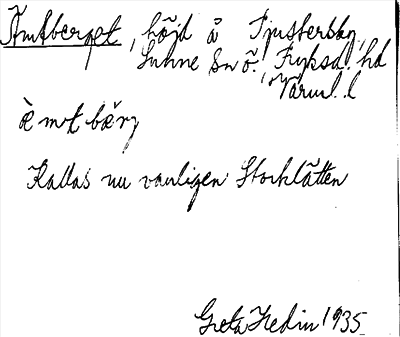 Ämtberget, höjd å Tjusterbky,
Sunne sn ö. Fryksd. hd
Värml. l
æ̀ mt bærj
Kallas nu vanligen Storklätten
Greta Hedin 1935